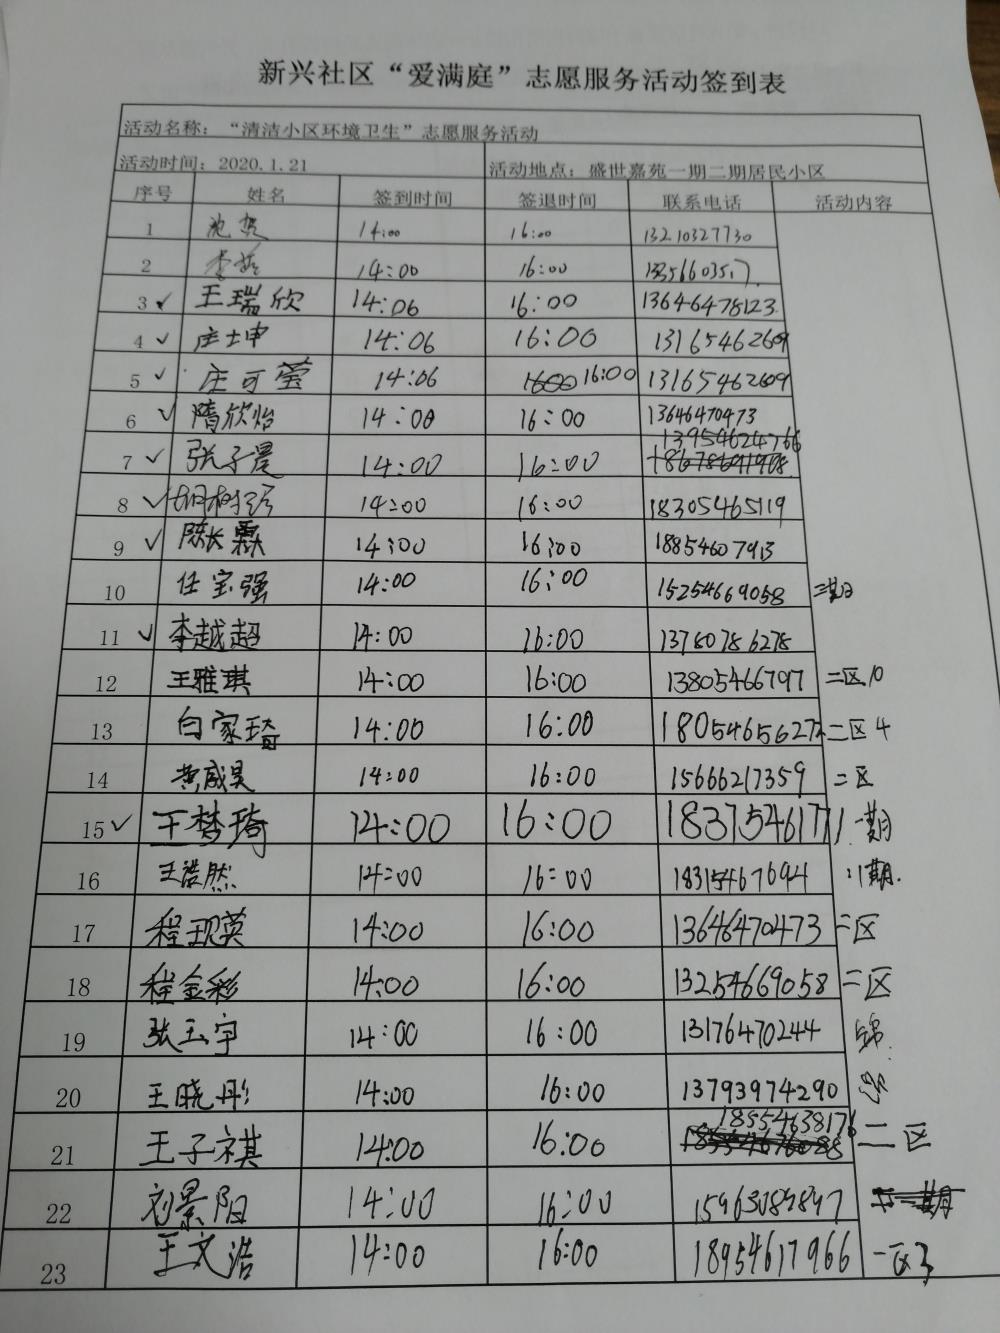 新兴社区“爱满庭”志愿服务活动签到表
活动名称：“清洁小区环境卫生”志愿服务活动
活动时间：2020.1.21 活动地点：盛世嘉苑一期二期居民小区
序号 姓名 签到时间 签退时间 联系电话 活动内容
1 14:00 16:00 13210327730
2 14:00 16:00
3 ✓ 王瑞欣 14:06 16:00 13646478123
4 ✓ 庄士申 14:06 16:00 13165462609
5 ✓ 庄可莹 14:06 16:00 13165462609
6 ✓ 隋欣怡 14:00 16:00 13646470473
7 ✓ 张子晨 14:00 16:00 13954624766
8 ✓ 14:00 16:00 18305465119
9 ✓ 陈长霖 14:00 16:00 18854607913
10 任宝强 14:00 16:00 15254669058 二期
11 ✓ 李越超 14:00 16:00 13780786278
12 王雅琪 14:00 16:00 13805466797 二区10
13 白家琦 14:00 16:00 18054656272 二区4
14 黄威昊 14:00 16:00 15666217359 二区
15 ✓ 王梦琦 14:00 16:00 18375461771 一期
16 王浩然 14:00 16:00 18315467694 期.
17 程现英 14:00 16:00 13646470473 二区
18 程金彩 14:00 16:00 13254669058 二区
19 张玉宇 14:00 16:00 13176470244
20 王晓彤 14:00 16:00 13793974290
21 王子祺 14:00 16:00 18554638176 二区
22 刘景阳 14:00 16:00 15963089897
23 王文浩 14:00 16:00 18954617966 一区3